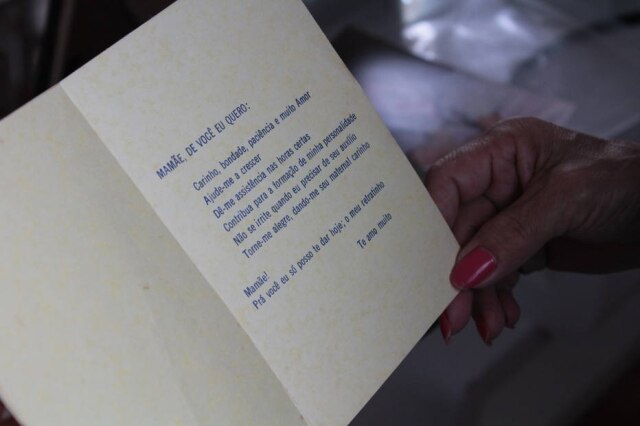 MAMÃE, DE VOCÊ EU QUERO:
Carinho, bondade, paciência e muito Amor
Ajude-me a crescer
Dê-me assistência nas horas certas
Contribua para a formação de minha personalidade
Não se irrite quando eu precisar de seu auxílio
Torne-me alegre, dando-me seu maternal carinho
Mamãe!
Prá você eu só posso te dar hoje, o meu retratinho
Te amo muito